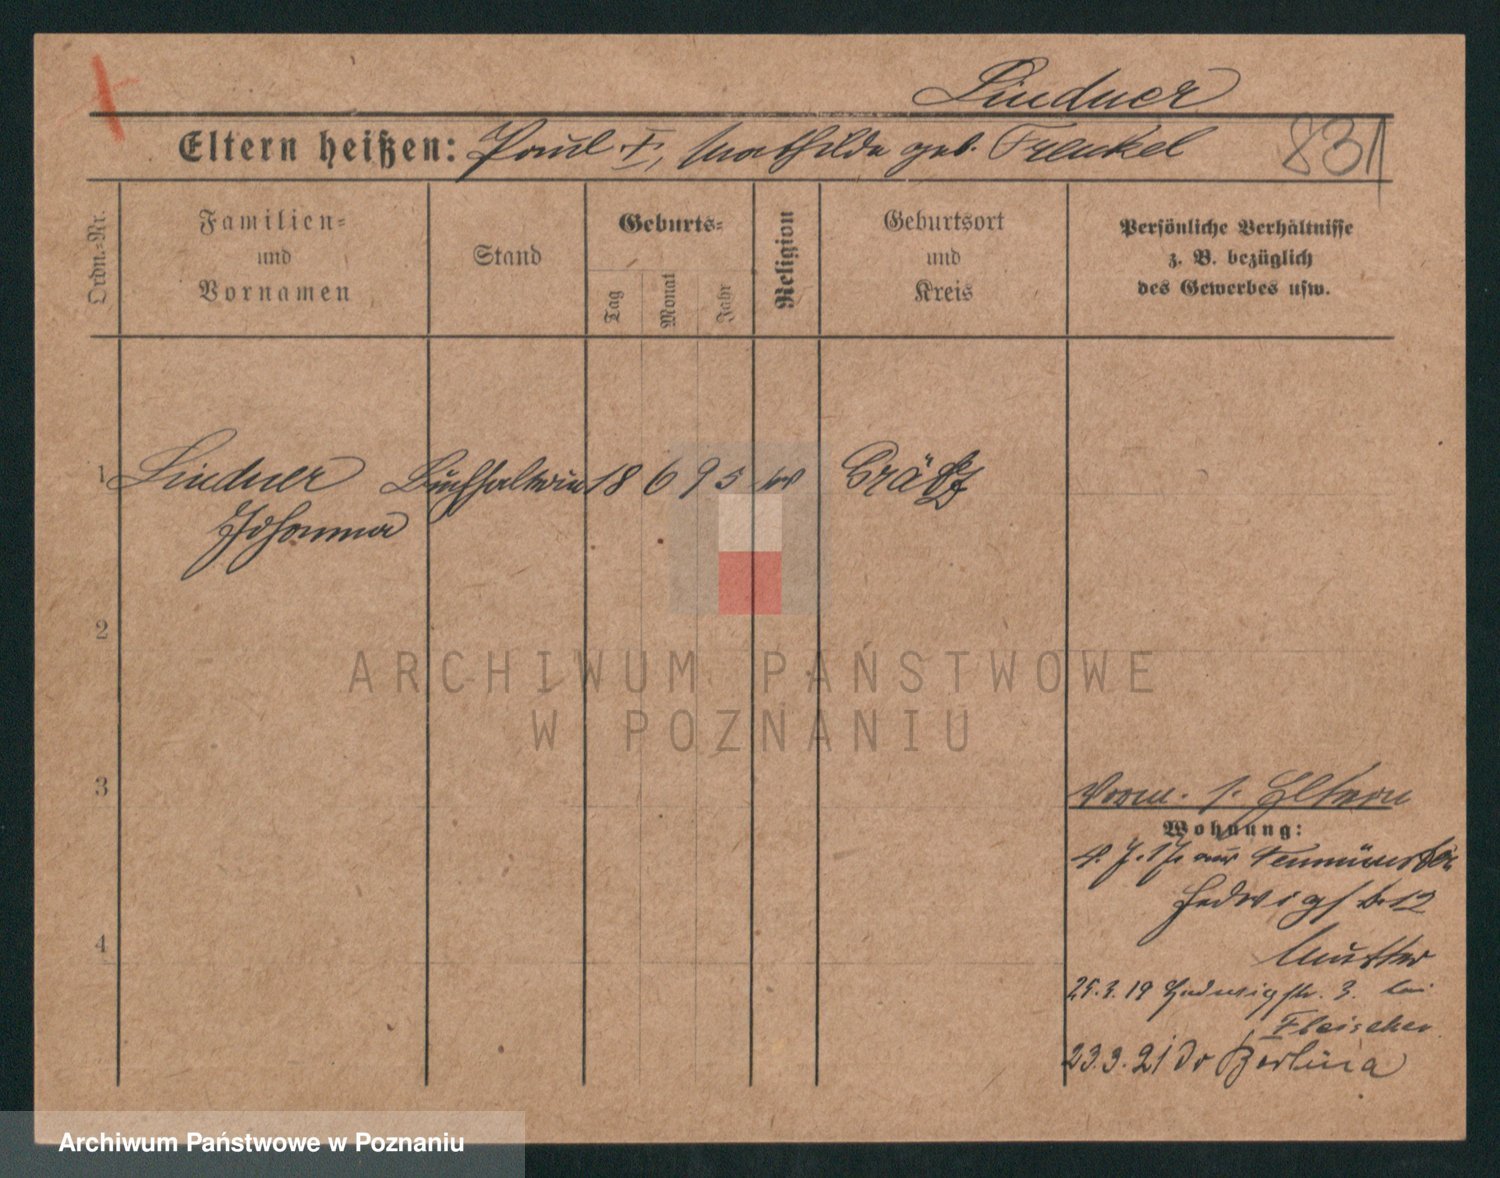 Lindner
Eltern heißen: Paul †, Mathilde geb. Frenkel
831
Ordn.-Nr.
Familien-
und
Vornamen
Stand
Geburts-
Tag
Monat
Jahr
Religion
Geburtsort
und
Kreis
Persönliche Verhältnisse
z. B. bezüglich
des Gewerbes usw.
1 Lindner Buchhalterin 18 6 95 Grätz
Johanna
2
3
4
ARCHIWUM PAŃSTWOWE
W POZNANIU
Vorm. s. Eltern
Wohnung:
4. 7. 17. aus
Hedwigstr. 12
Mutter
25.3.19 Hedwigstr. 3. bei
Fleischer
23.3.21 Berlin
Archiwum Państwowe w Poznaniu